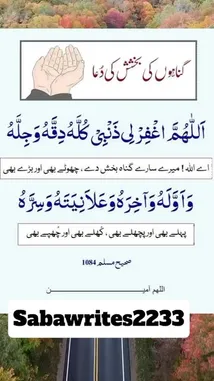 گناہوں کی بخشش کی دُعا
اَللّٰهُمَّ اغْفِرْ لِی ذَنْبِیْ كُلَّهٗ دِقَّهٗ وَجِلَّهٗ
اے اللہ ! میرے سارے گناہ بخش دے ، چھوٹے بھی اور بڑے بھی
وَاَوَّلَهٗ وَآخِرَهٗ وَعَلَانِيَتَهٗ وَسِرَّهٗ
پہلے بھی اور پچھلے بھی ، کُھلے بھی اور چُھپے بھی
صحیح مسلم 1084
اللھم آمیـــــن
Sabawrites2233